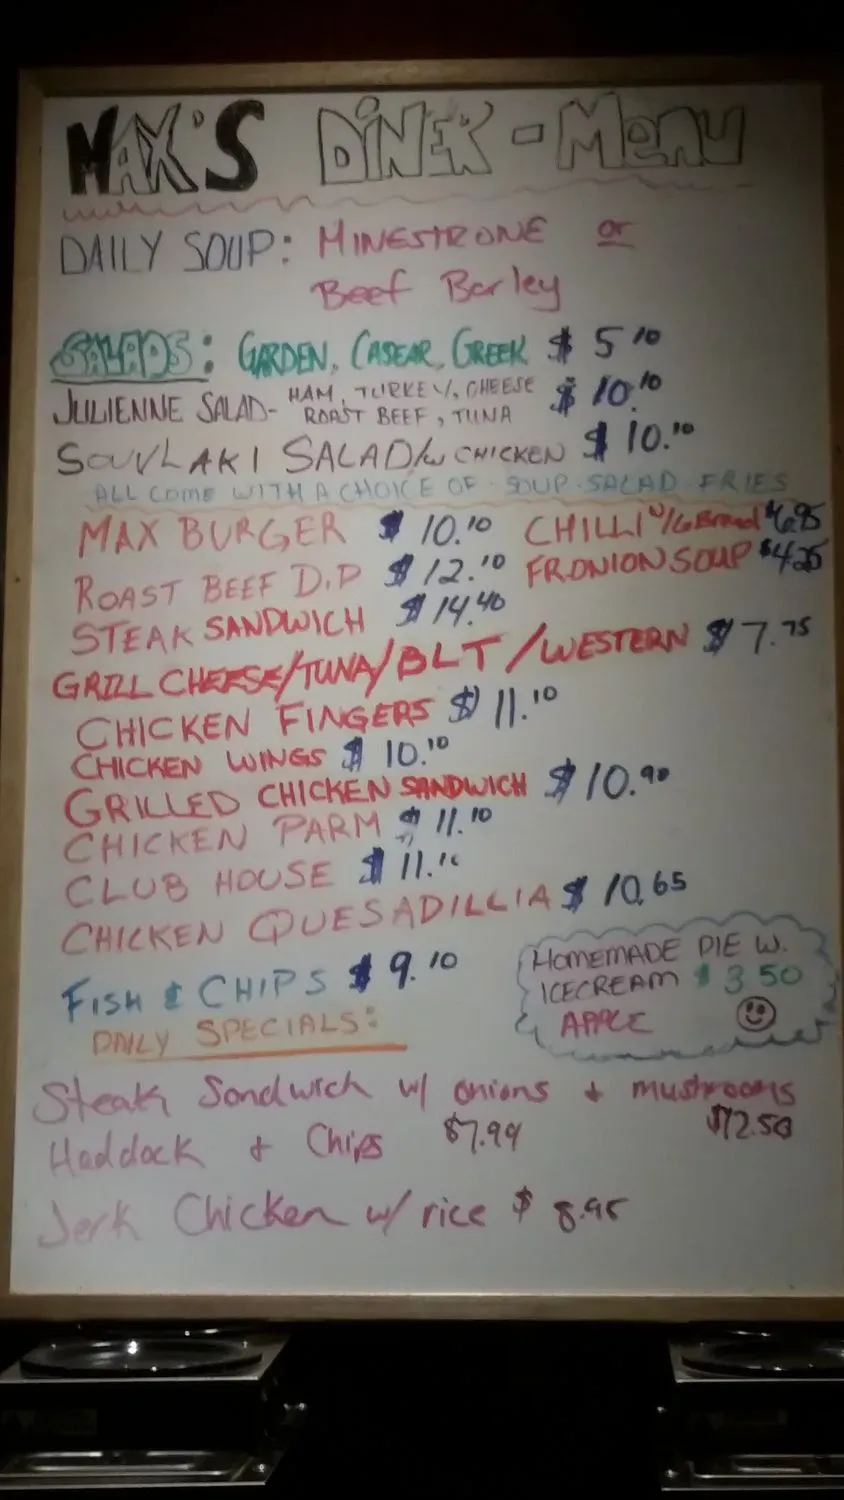 MAX'S DINER - MENU
DAILY SOUP: MINESTRONE or
Beef Barley
SALADS: GARDEN, CASEAR, GREEK $ 5 10
JULIENNE SALAD- HAM, TURKEY, CHEESE $ 10.10
ROAST BEEF, TUNA
SOUVLAKI SALAD/w CHICKEN $ 10.10
ALL COME WITH A CHOICE OF SOUP.SALAD.FRIES
MAX BURGER $ 10.10 CHILLI W/G Bread $6.95
ROAST BEEF D.P $ 12.10 FR ONION SOUP $4.25
STEAK SANDWICH $ 14.40
GRILL CHEESE/TUNA/BLT/WESTERN $ 7.75
CHICKEN FINGERS $ 11.10
CHICKEN WINGS $ 10.10
GRILLED CHICKEN SANDWICH $ 10.90
CHICKEN PARM $ 11.10
CLUB HOUSE $ 11.10
CHICKEN QUESADILLIA $ 10.65
FISH & CHIPS $ 9.10
HOMEMADE PIE W.
ICECREAM $ 3 50
APPLE
DAILY SPECIALS:
Steak Sandwich w/ onions + mushrooms
$12.50
Haddock + Chips $7.99
Jerk Chicken w/ rice $ 8.95